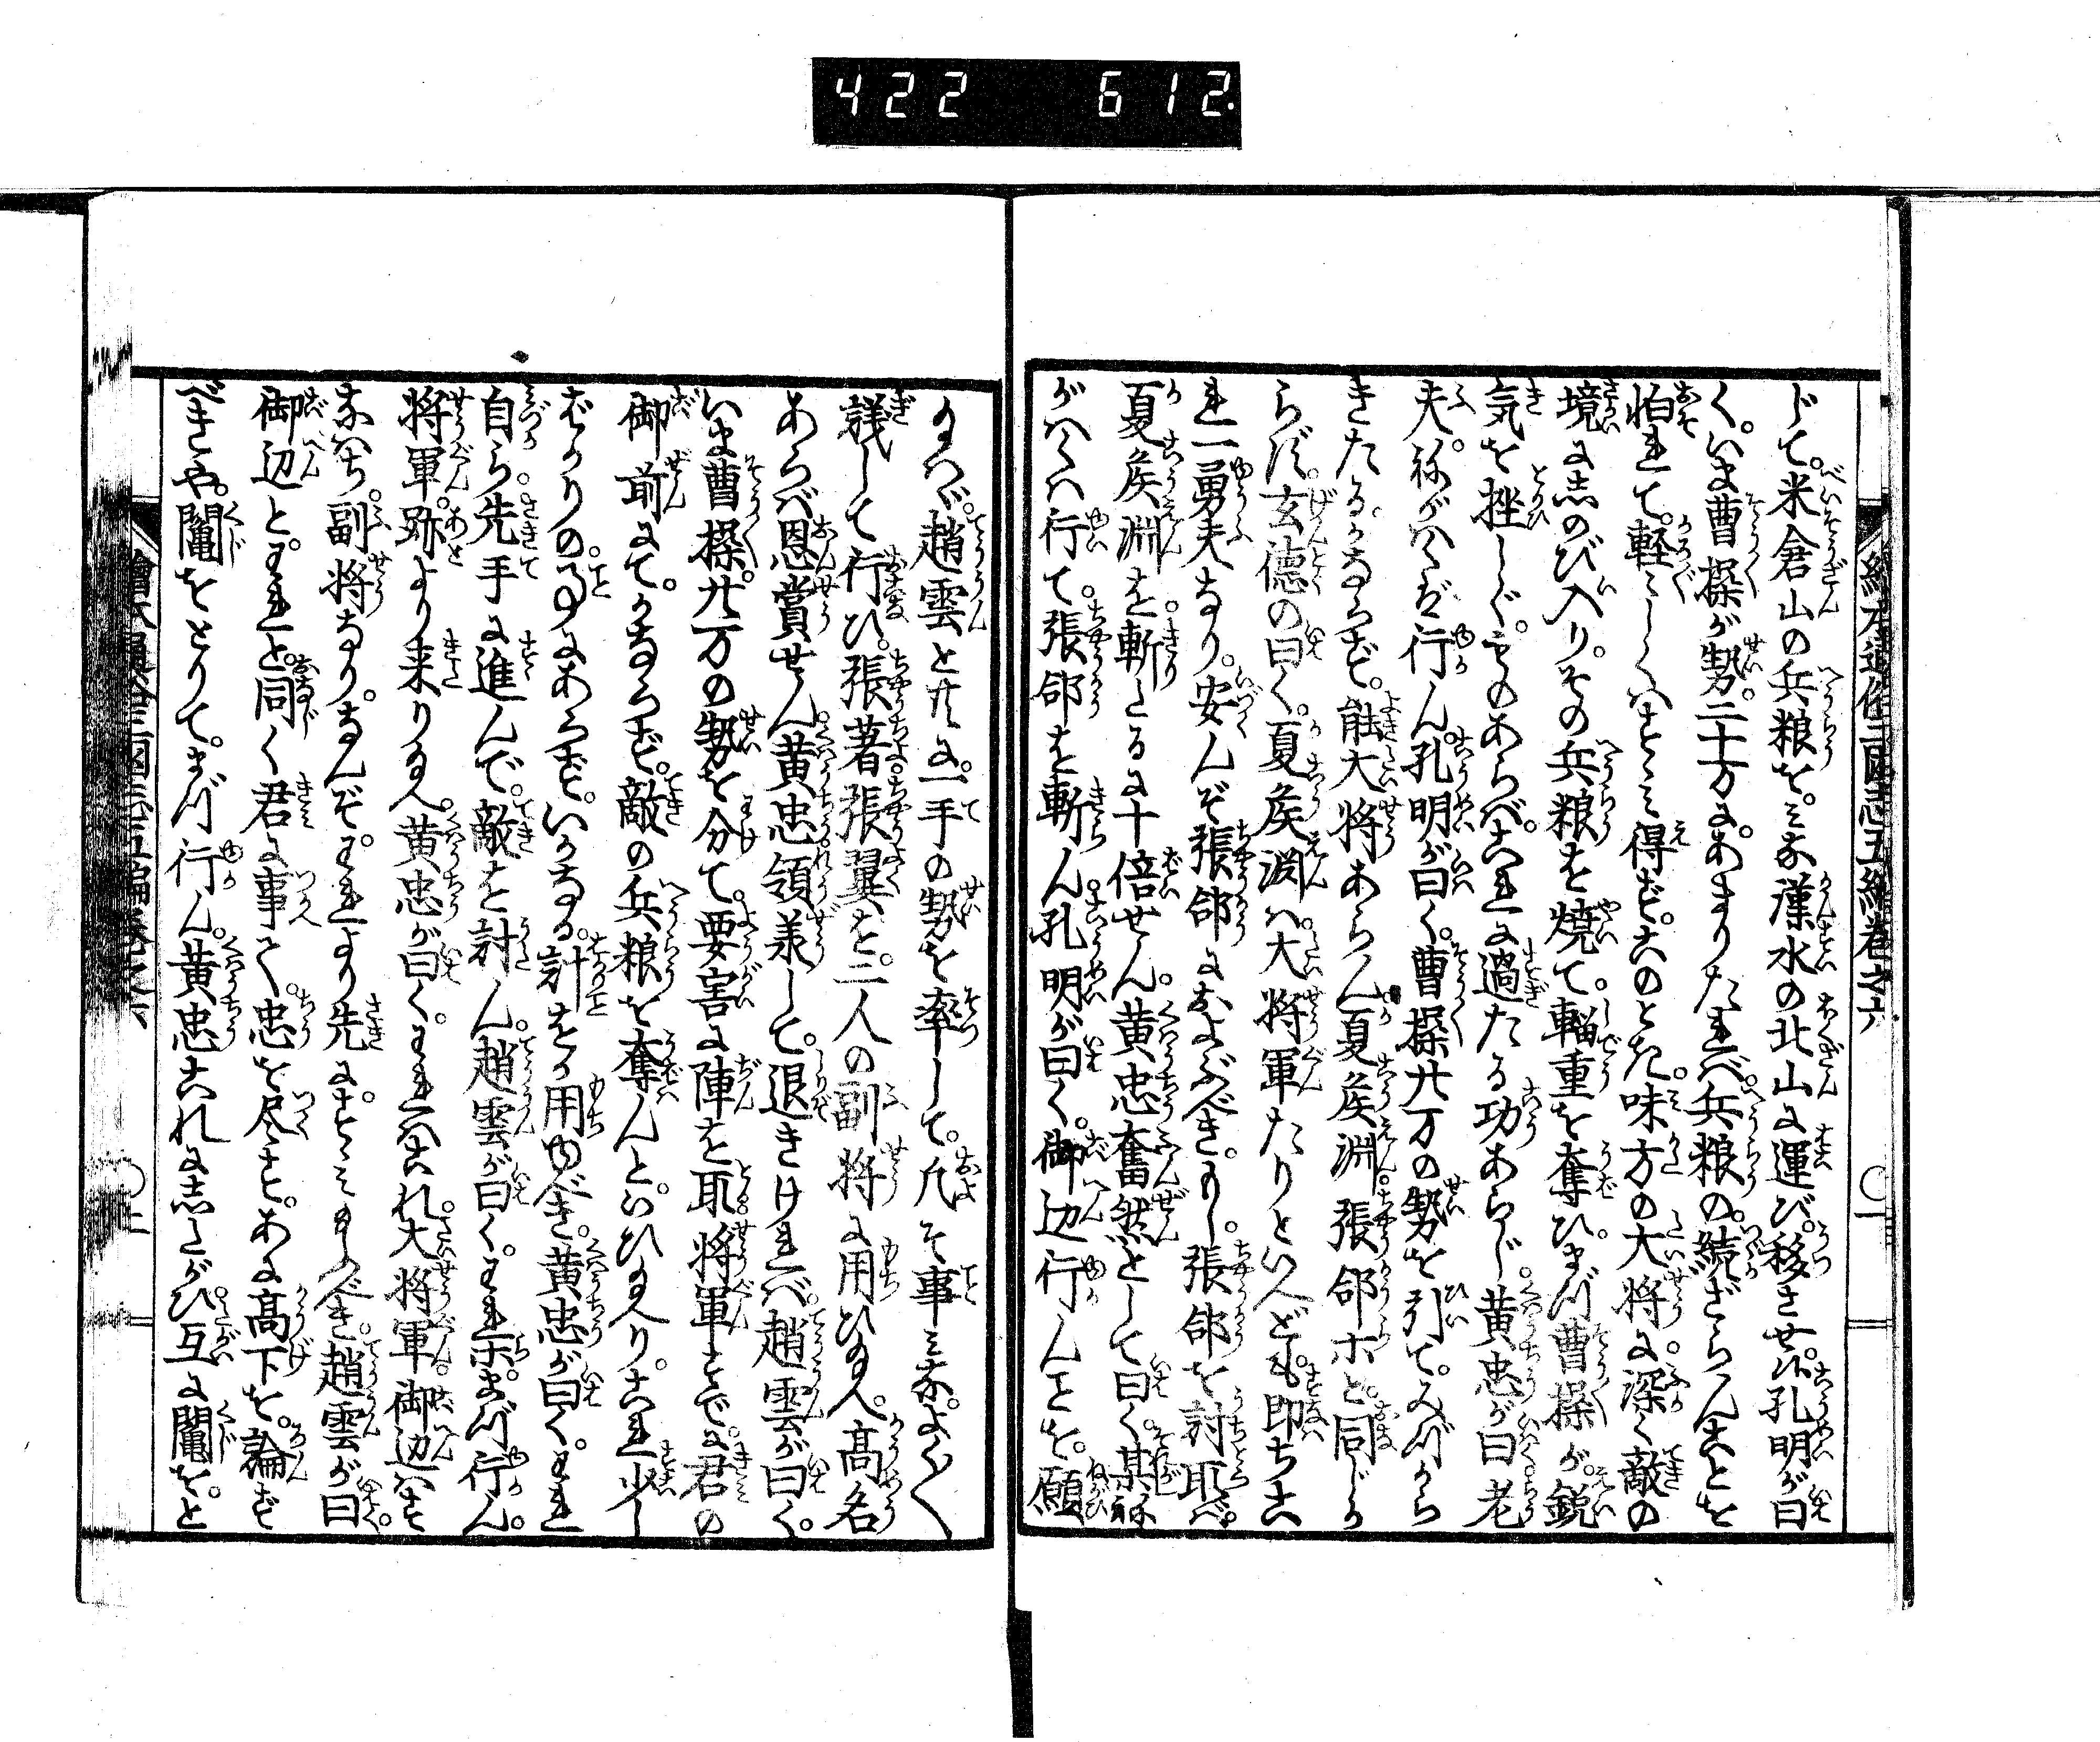 422 612
絵本通俗三国志五編巻之六
じて。米倉山の兵粮を。みな漢水の北山に運び。移させ候。孔明が曰
く。いま曹操が勢。二十万に。あまりたれば。兵粮の。続ざらんことを
怕れて。軽〻しくはすゝみ得ず。このとき。味方の大将。に深く敵の
境に志のび入り。その兵粮を焼て。輜重を奪ひ。まづ曹操が。鋭
気を挫しぐ。ものあらば。これに過たる功あらじ。黄忠が曰老
夫。ねがはくば行ん。孔明が曰く。曹操廿万の勢を引て。みづから
きたる。かならず。能大将あらん。夏矦淵。張郃ホと。同じか
らず。玄徳の曰く。夏矦淵は。大将軍たりといへども。即ちこ
れ一勇夫なり。安んぞ張郃におよぶべき。もし。張郃を討取ば。
夏矦淵を。斬たるに十倍せん。黄忠奮然として曰く。某ね
がはくは行て。張郃を斬ん。孔明が曰く。御辺行んとを。願
はゞ。趙雲と共に。一手の勢を率して。凢そ事みな。よく〳〵
議して行ひ。張著。張翼を。二人の副将に用ひ給へ。高名
あらば恩賞せん。黄忠領承して。退きければ。趙雲が曰く。
いま曹操。廿万の勢を分て。要害に陣を取。将軍すでに君の
御前にて。かならず。敵の兵粮を奪んと。いひ給へり。これ少し
ばかりの。事にあらず。いかなる。計をか用ゆべき。黄忠が曰く。われ
自ら。先手に進んで。敵を討ん。趙雲が曰く。われ宗まづ行ん。
将軍。跡より来り給へ。黄忠が曰く。われはこれ。大将軍。御辺はす
なはち。副将なり。なんぞ。われより先に。すゝみ給ふべき。趙雲が曰。
御辺と。われと。同じく君に事へて。忠を尽こと。あに高下を。論ず
べきや。鬮をとりて。まづ行ん。黄忠これに志たがひ。互に鬮を。と